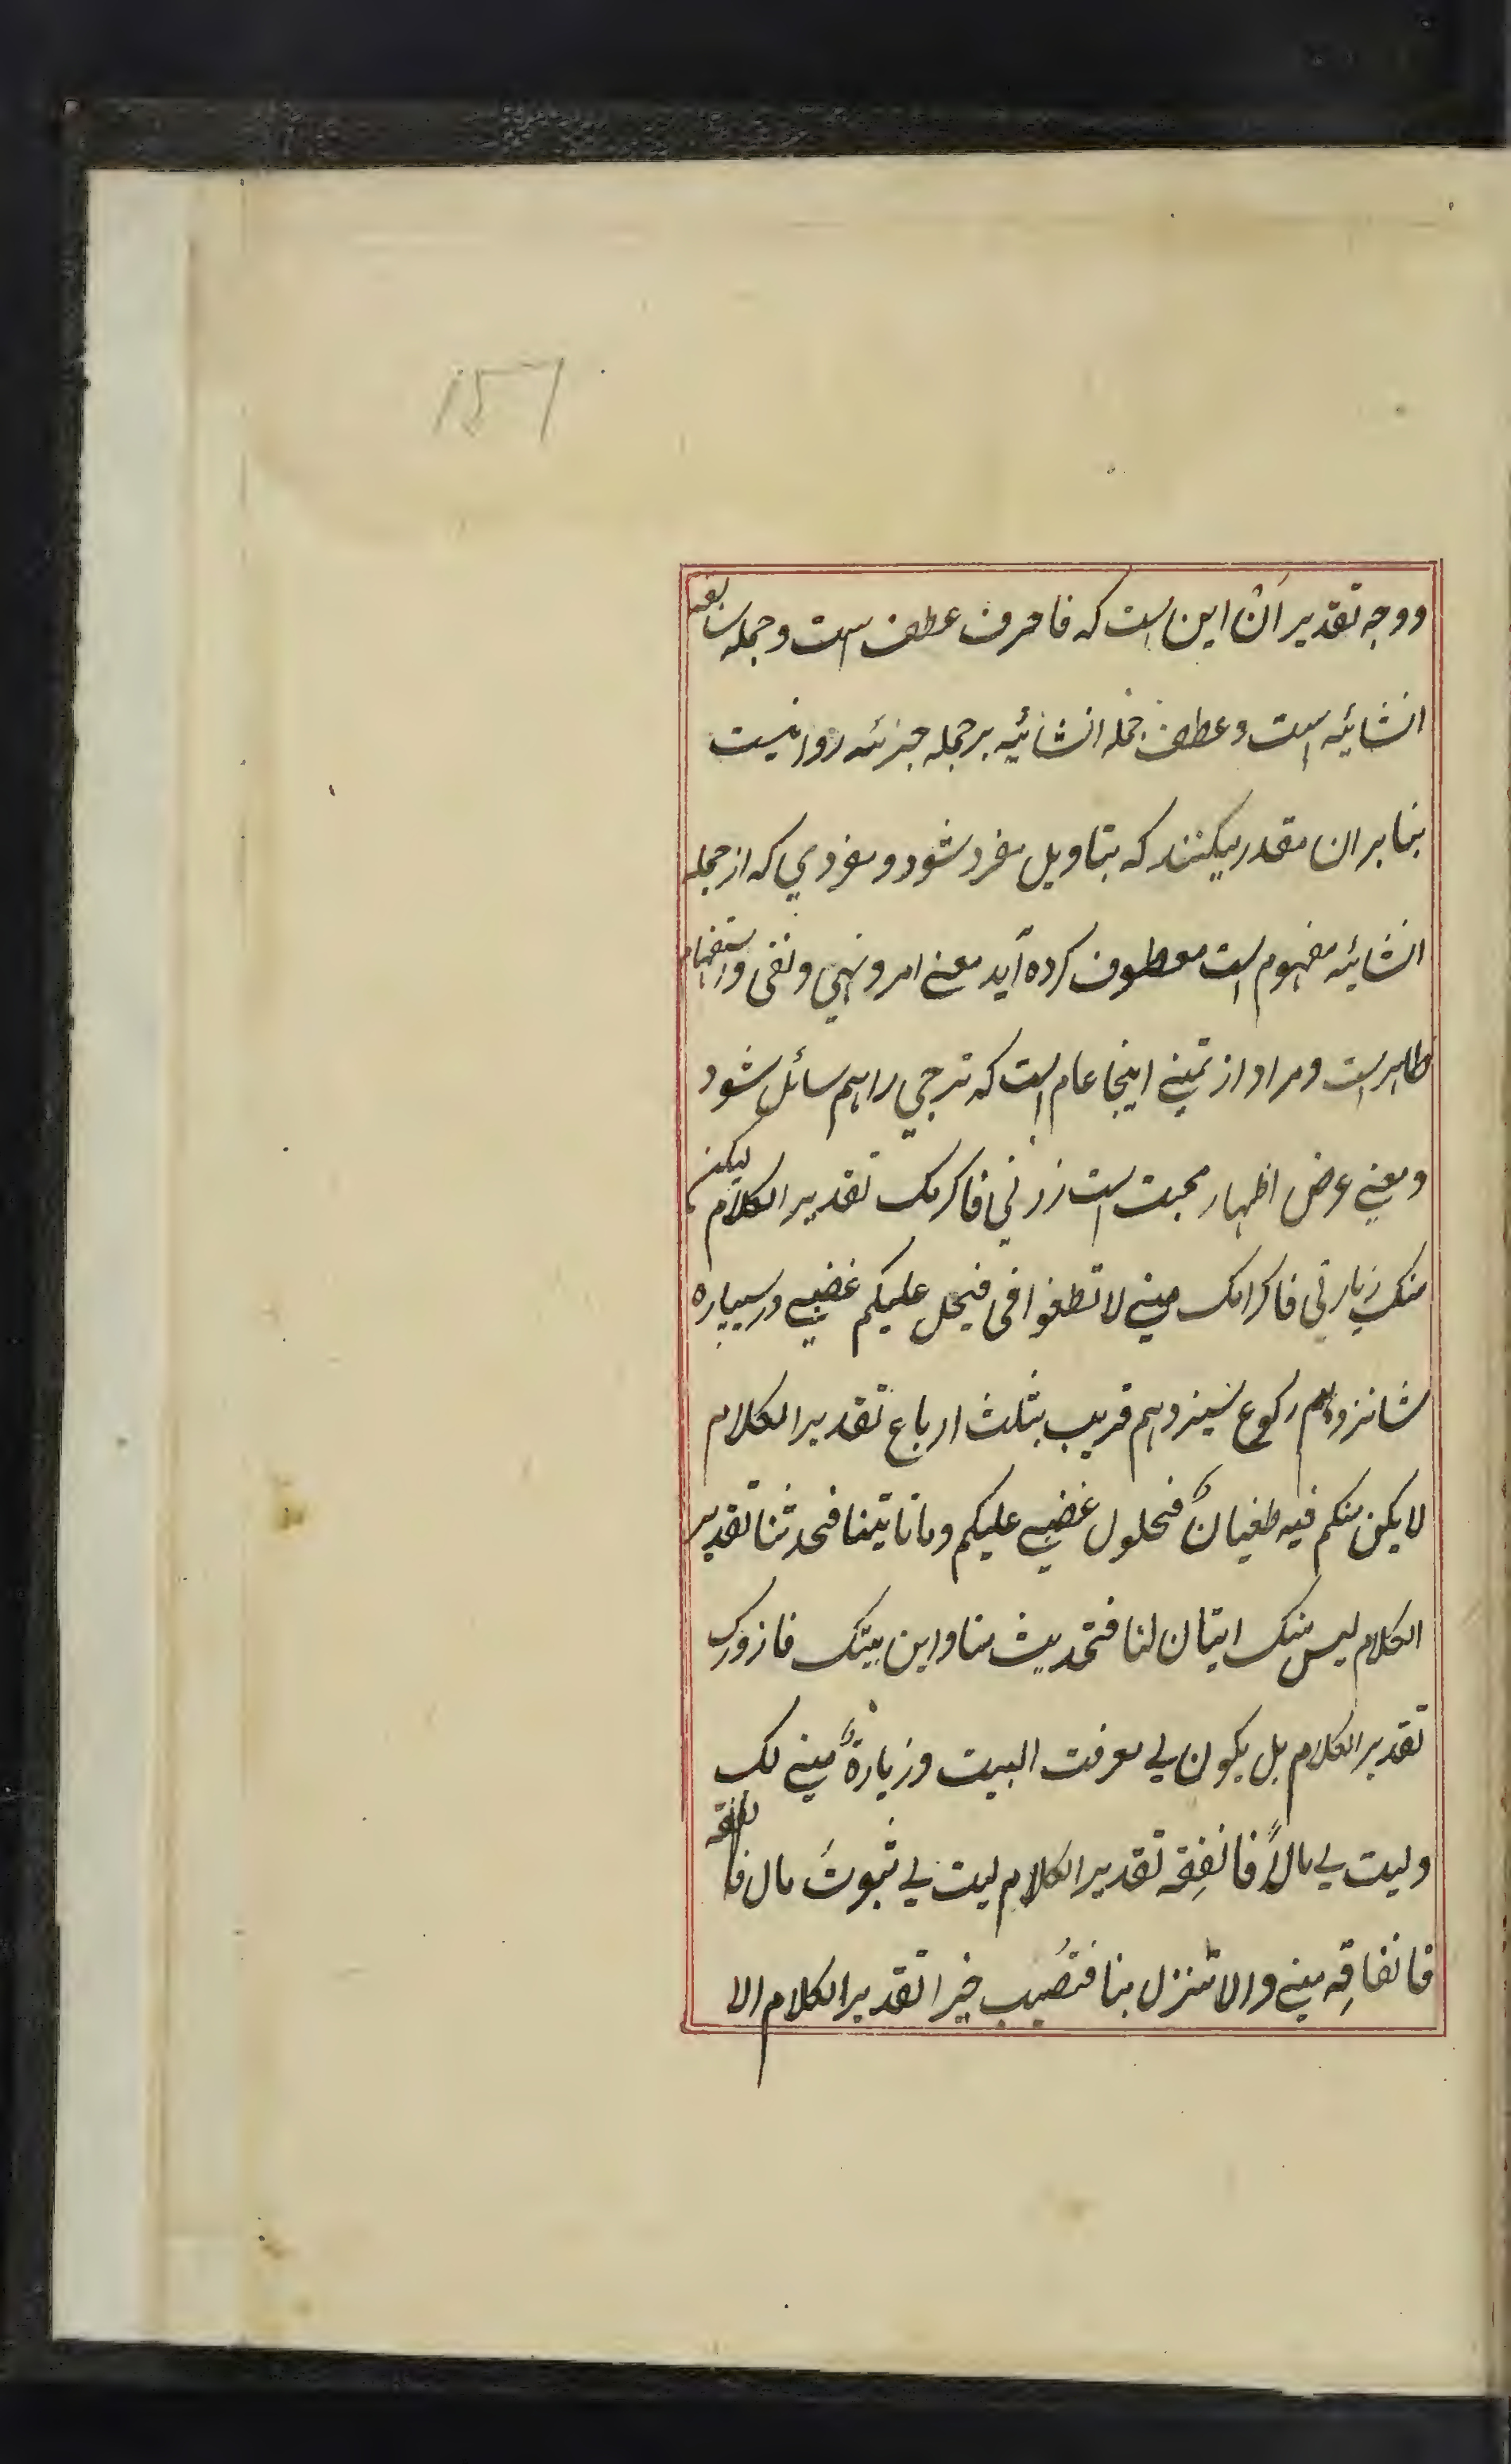 157
ووجه تقدیر اَنْ این است که فا حرف عطف است وجمله سابقه
انشائیه است وعطف جمله انشائیه برجمله خبرئه روا نیست
بنابر ان مقدر میکنند که بتاویل مفرد شود ومفردي که از جمله
انشائیه مفهوم است معطوف کرده آید معنے امر ونهي ونفی واستفهام
ظاهر است ومراد از تمنے اینجا عام است که ترجي را هم شود
ومعنے عرض اظهار محبت است زرني فاکرمک تقدیر الکلام لیکن
منک زیارتی فاکرامک منے لا تطغوا فی فیحل علیکم غضبے در سیپاره
شانزدهم رکوع سیزدهم قریب بثلث ارباع تقدیر الکلام
لا یکن منکم فیه طغیانٌ فحلول غضبے علیکم وما تاتینا فتحدثنا تقدیر
الکلام لیس منک اتیان لنا فتحدیث منا واین بیتک فازورک
تقدیر الکلام بل یکون لے معرفت البیت وزیارةٌ منے لک
ولیت لے مالًا فانفِقه تقدیر الکلام لیت لے ثبوتَ مال
فانفاقِه منے والا تنزل بنا فتُصیب خیرا تقدیر الکلام الا